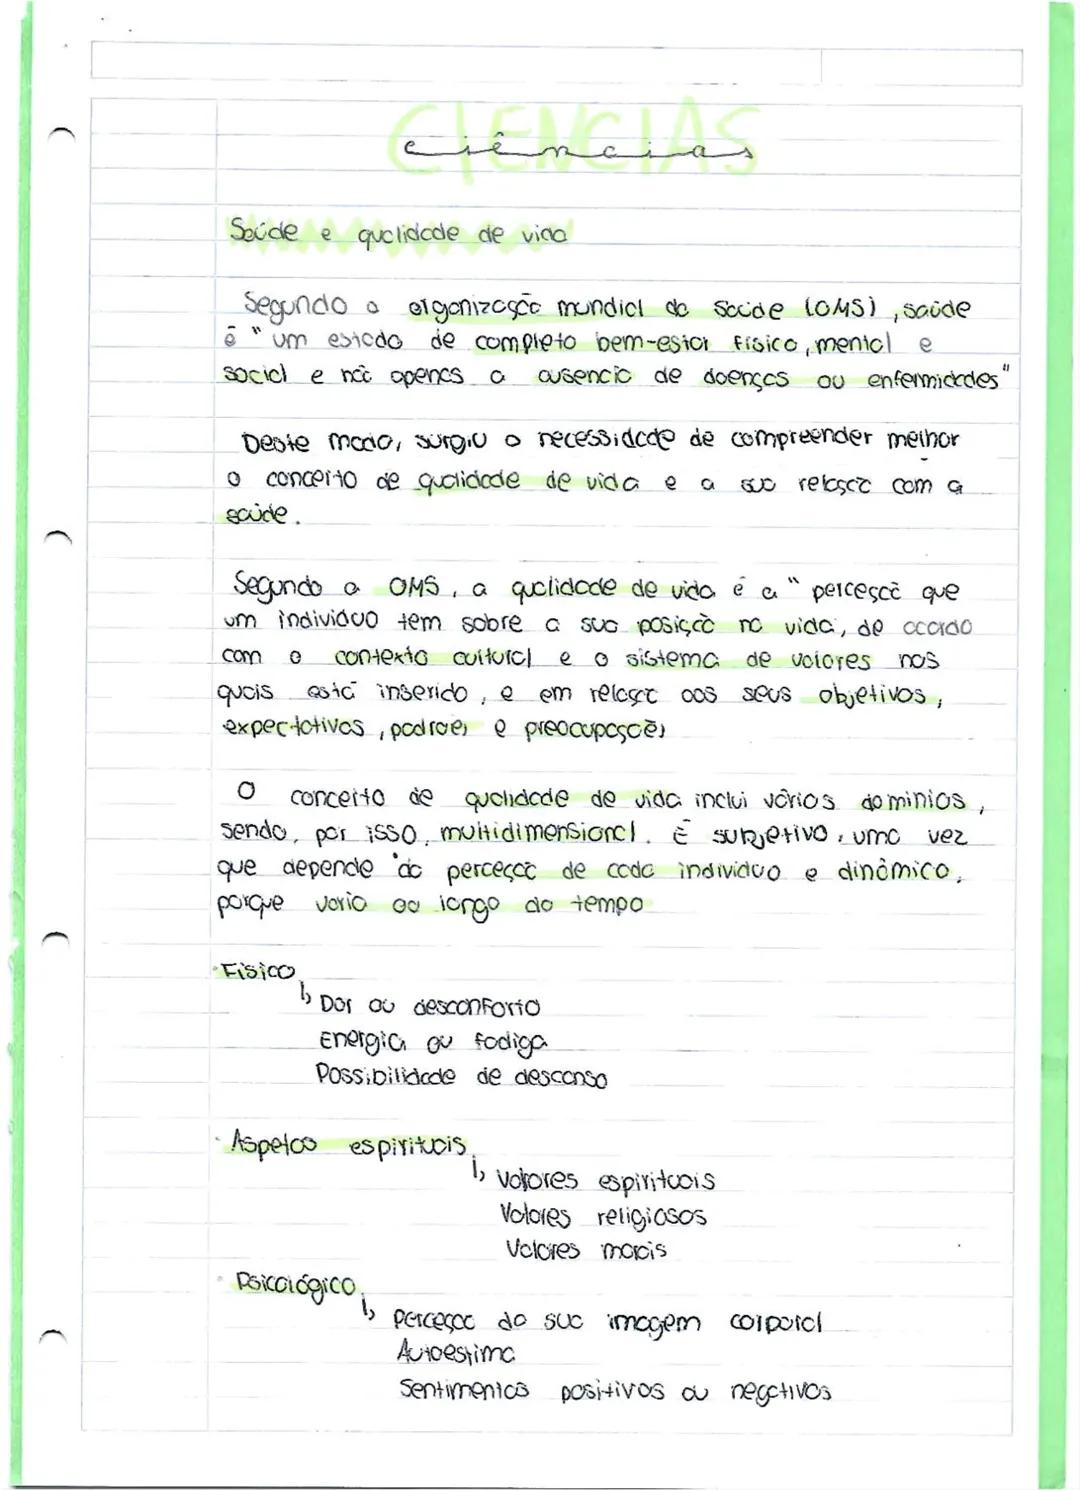 CIENCIAS
ciências
Saúde e qualidade de vida
Segundo a organização mundial da Saúde (OMS), saúde
é "um estado de completo bem-estar físico, mental e
social e não apenas a ausencia de doenças ou enfermidades"
Deste modo, surgiu a necessidade de compreender melhor
o conceito de qualidade de vida e a sua relação com a
saúde.
Segundo a OMS, a qualidade de vida é a "perceção que
um individuo tem sobre a sua posição na vida, de acordo
com o contexto cultural e o sistema de valores nos
quais está inserido, e em relação aos seus objetivos,
expectativas, padrões e preocupações
O conceito de qualidade de vida inclui vários dominios,
sendo, por isso, multidimensional. É subjetivo, uma vez
que depende da perceção de cada individuo e dinâmico,
porque varia ao longo do tempo
· Fisico
↳ Dor ou desconforto
Energia ou fadiga
Possibilidade de descanso
· Aspetos espirituais
↳ Valores espirituais
Valores religiosos
Valores morais
· Psicológico
↳ Perceção da sua imagem corporal
Autoestima
Sentimentos positivos ou negativos